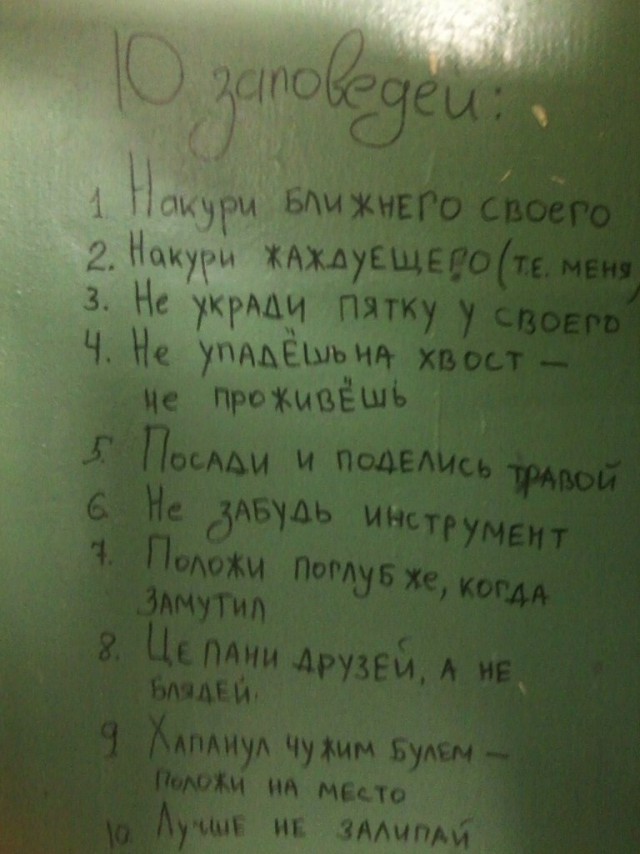 10 заповедей:
1 Накури ближнего своего
2. Накури жаждуещего (т.е. меня)
3. Не укради пятку у своего
4. Не упадёшь на хвост –
не проживёшь
5. Посади и поделись травой
6 Не забудь инструмент
7. Положи поглубже, когда
замутил
8. Цепани друзей, а не
блядей.
9 Хапанул чужим булем –
положи на место
10. Лучше не залипай